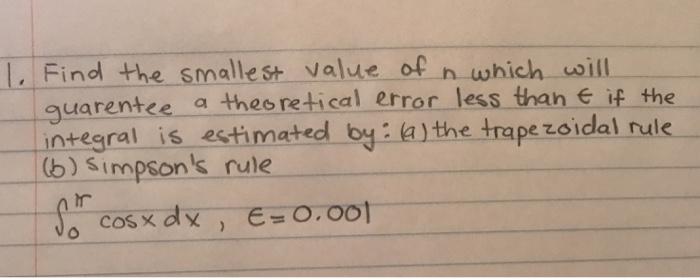 1. Find the smallest value of n which will
guarentee a theoretical error less than ϵ if the
integral is estimated by: (a) the trapezoidal rule
(b) Simpson's rule
∫₀^π cosx dx, ϵ=0.001